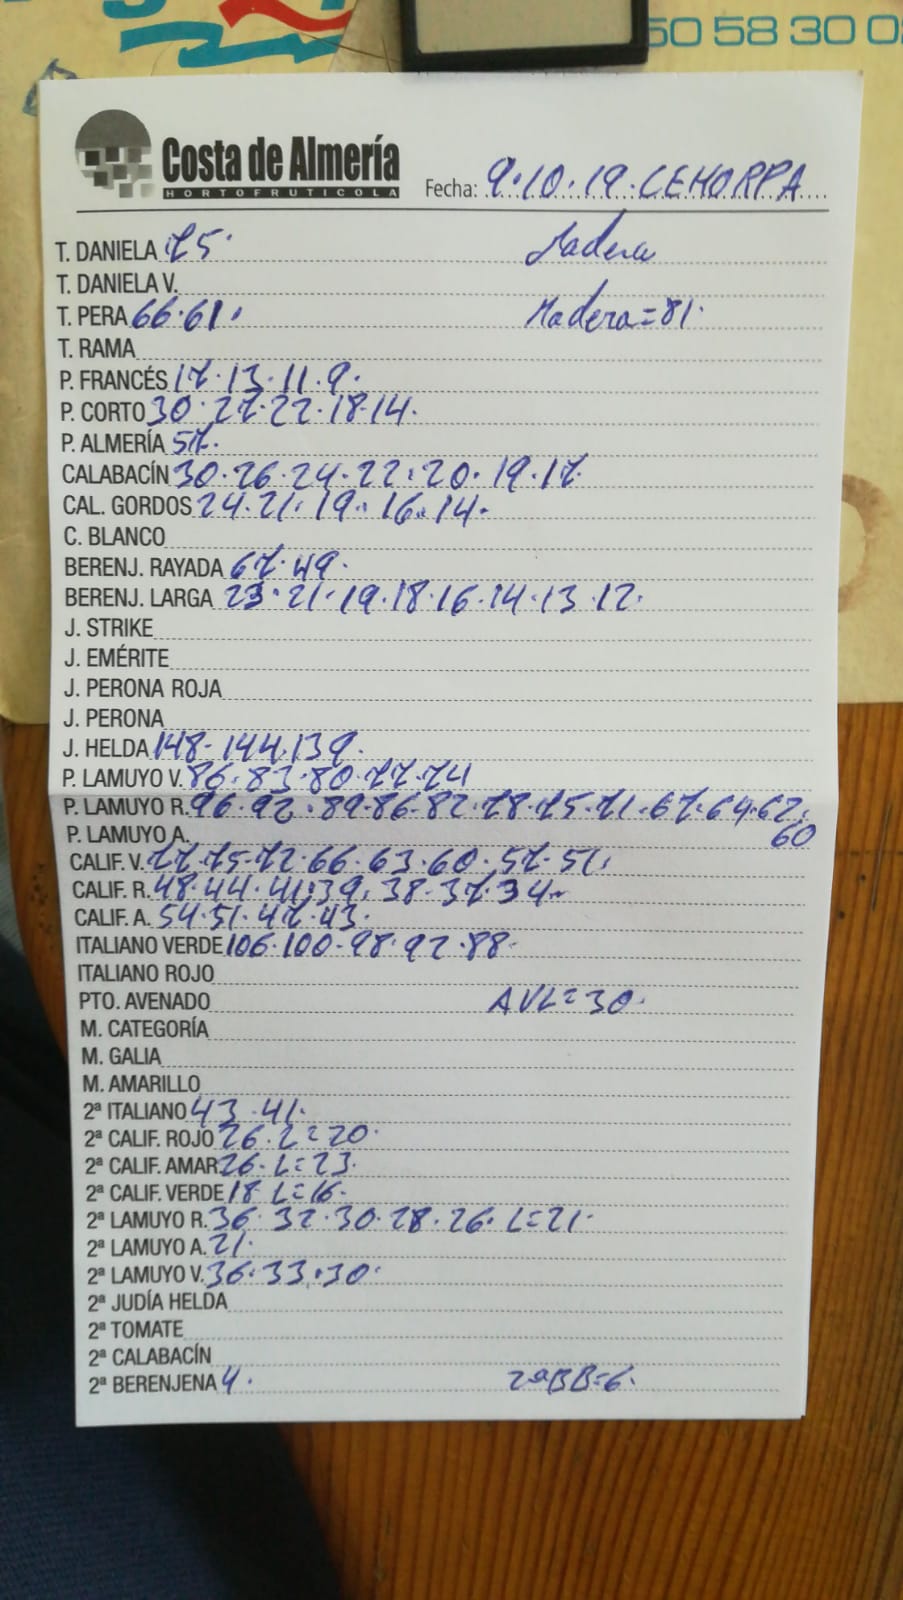 50 58 30 0
Costa de Almería
HORTOFRUTICOLA
Fecha: 9.10.19.CEHORPA
T. DANIELA 75. Madera
T. DANIELA V.
T. PERA 66.61. Madera=81.
T. RAMA
P. FRANCÉS 17.13.11.9.
P. CORTO 30.27.22.18.14.
P. ALMERÍA 57.
CALABACÍN 30.26.24.22.20.19.17.
CAL. GORDOS 24.21.19.16.14.
C. BLANCO
BERENJ. RAYADA 67.49.
BERENJ. LARGA 23.21.19.18.16.14.13.12.
J. STRIKE
J. EMÉRITE
J. PERONA ROJA
J. PERONA
J. HELDA 148-144.139.
P. LAMUYO V. 86.83.80.77.74
P. LAMUYO R. 96.92.89.86.82.78.75.71.67.64.62.
60
P. LAMUYO A.
CALIF. V. 77.75.72.66.63.60.57.51.
CALIF. R. 48.44.41.39.38.37.34.
CALIF. A. 54.51.47.43.
ITALIANO VERDE 106.100.98.92.88.
ITALIANO ROJO
PTO. AVENADO AVL=30.
M. CATEGORÍA
M. GALIA
M. AMARILLO
2ª ITALIANO 43.41.
2ª CALIF. ROJO 26.L=20.
2ª CALIF. AMAR 26.L=23.
2ª CALIF. VERDE 18 L=16.
2ª LAMUYO R. 36.32.30.28.26.L=21.
2ª LAMUYO A. 21.
2ª LAMUYO V. 36.33.30.
2ª JUDÍA HELDA
2ª TOMATE
2ª CALABACÍN
2ª BERENJENA 4. 2ªBB=6.